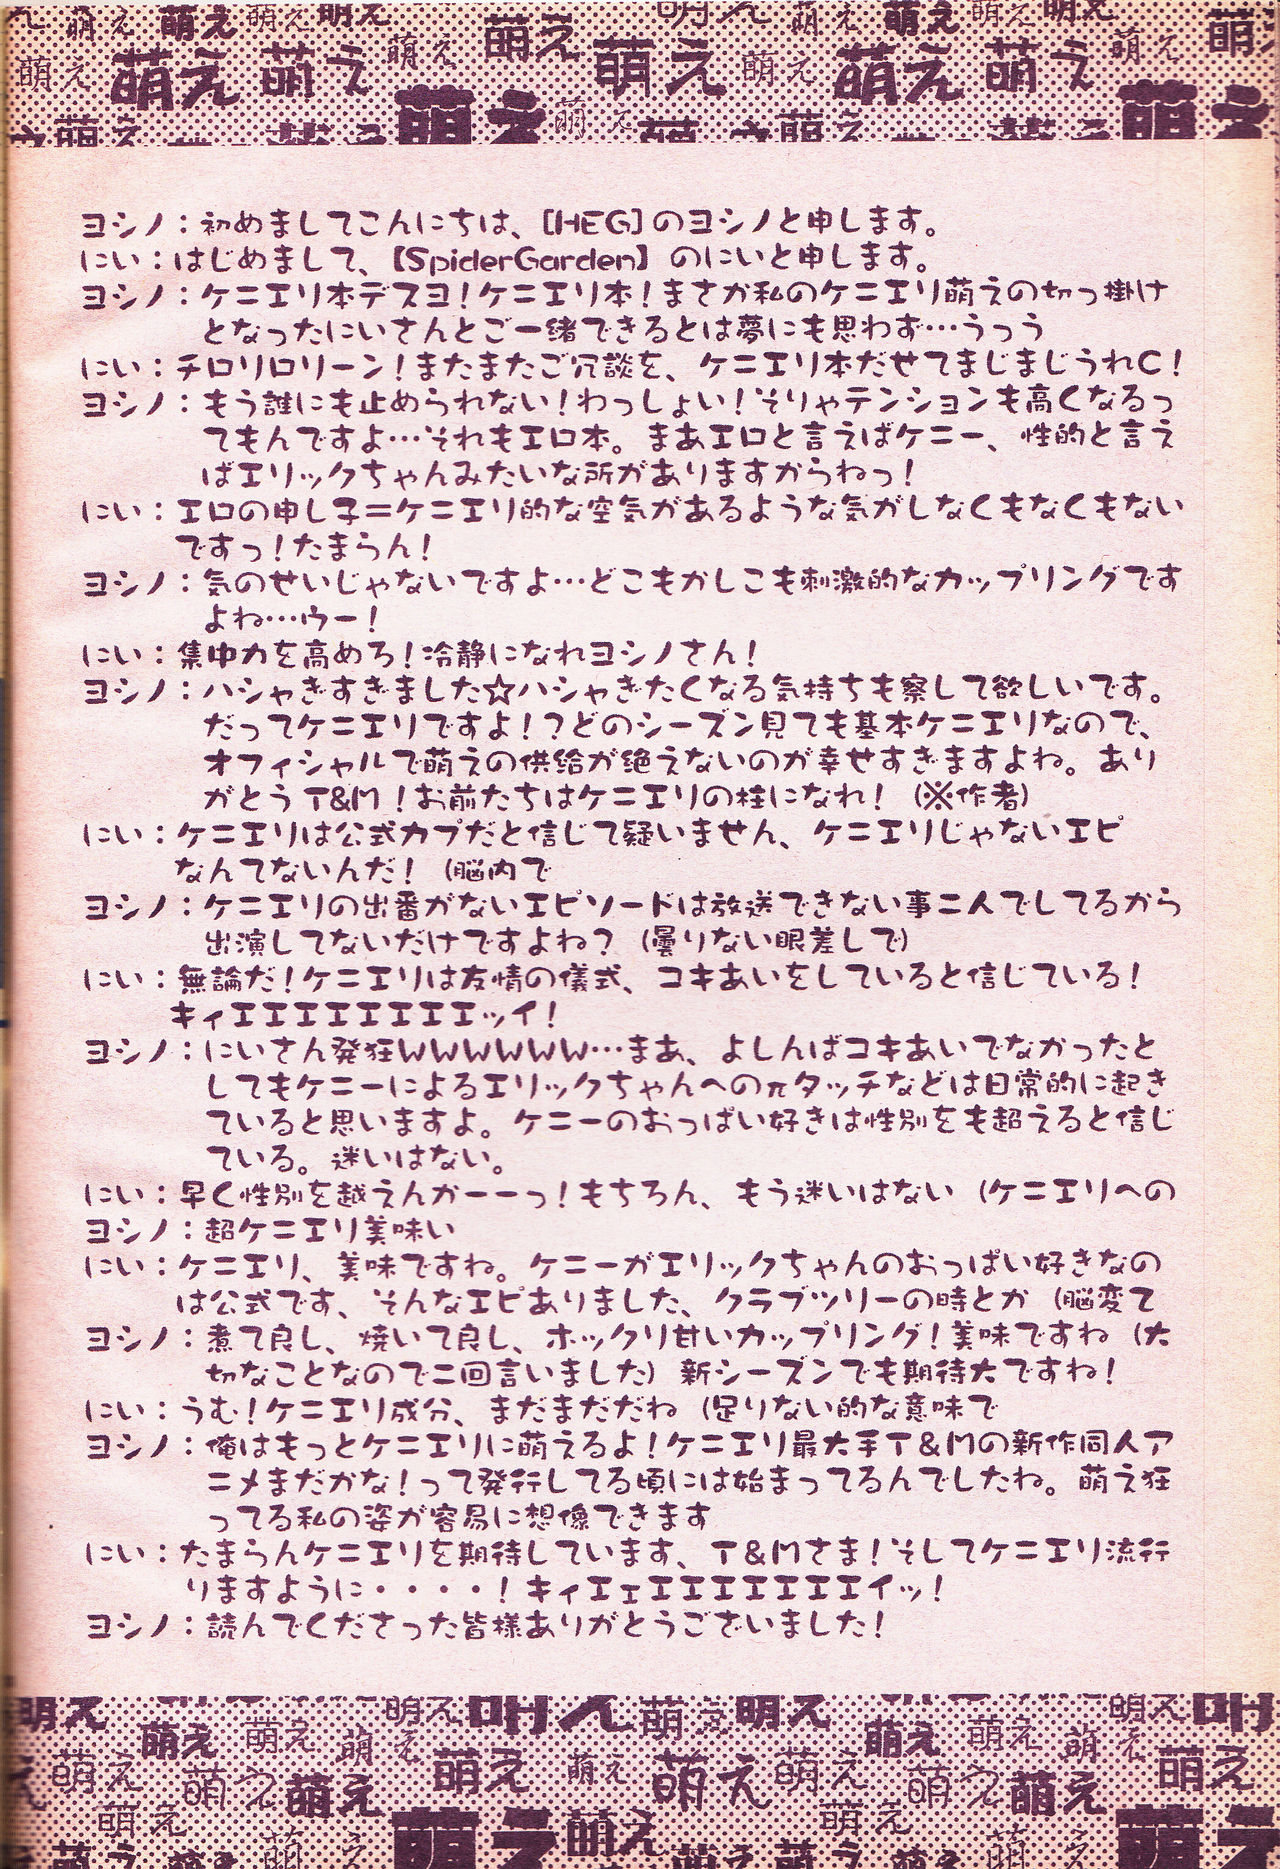 萌え 萌え 萌え 萌え 萌え
萌え 萌え 萌え 萌え 萌え 萌え 萌え 萌え 萌え 萌え 萌え
萌え 萌え 萌え 萌え 萌え
ヨシノ：初めましてこんにちは、[HEG]のヨシノと申します。
にい：はじめまして、【SpiderGarden】のにいと申します。
ヨシノ：ケニエリ本デスヨ！ケニエリ本！まさか私のケニエリ萌えの切っ掛け
となったにいさんとご一緒できるとは夢にも思わず…うっう
にい：チロリロリーン！またまたご冗談を、ケニエリ本だせてまじまじうれC！
ヨシノ：もう誰にも止められない！わっしょい！そりゃテンションも高くなるっ
てもんですよ…それもエロ本。まあエロと言えばケニー、性的と言え
ばエリックちゃんみたいな所がありますからねっ！
にい：エロの申し子＝ケニエリ的な空気があるような気がしなくもなくもない
ですっ！たまらん！
ヨシノ：気のせいじゃないですよ…どこもかしこも刺激的なカップリングです
よね…ウー！
にい：集中力を高めろ！冷静になれヨシノさん！
ヨシノ：ハシャぎすぎました☆ハシャぎたくなる気持ちも察して欲しいです。
だってケニエリですよ！？どのシーズン見ても基本ケニエリなので、
オフィシャルで萌えの供給が絶えないのが幸せすぎますよね。あり
がとうT&M！お前たちはケニエリの柱になれ！（※作者）
にい：ケニエリは公式カプだと信じて疑いません、ケニエリじゃないエピ
なんてないんだ！（脳内で
ヨシノ：ケニエリの出番がないエピソードは放送できない事二人でしてるから
出演してないだけですよね？（曇りない眼差しで）
にい：無論だ！ケニエリは友情の儀式、コキあいをしていると信じている！
キィエエエエエエエエッイ！
ヨシノ：にいさん発狂WWWWWW…まあ、よしんばコキあいでなかったと
してもケニーによるエリックちゃんへのπタッチなどは日常的に起き
ていると思いますよ。ケニーのおっぱい好きは性別をも超えると信じ
ている。迷いはない。
にい：早く性別を越えんかーーっ！もちろん、もう迷いはない（ケニエリへの
ヨシノ：超ケニエリ美味い
にい：ケニエリ、美味ですね。ケニーがエリックちゃんのおっぱい好きなの
は公式です、そんなエピありました、クラブツリーの時とか（脳変て
ヨシノ：煮て良し、焼いて良し、ホックリ甘いカップリング！美味ですね（大
切なことなので二回言いました）新シーズンでも期待大ですね！
にい：うむ！ケニエリ成分、まだまだだね（足りない的な意味で
ヨシノ：俺はもっとケニエリに萌えるよ！ケニエリ最大手T&Mの新作同人ア
ニメまだかな！って発行してる頃には始まってるんでしたね。萌え狂
ってる私の姿が容易に想像できます
にい：たまらんケニエリを期待しています、T&Mさま！そしてケニエリ流行
りますように・・・・！キィエェエエエエエエエイッ！
ヨシノ：読んでくださった皆様ありがとうございました！
萌え 萌え 萌え 萌え 萌え
萌え 萌え 萌え 萌え 萌え 萌え 萌え 萌え 萌え 萌え 萌え
萌え 萌え 萌え 萌え 萌え